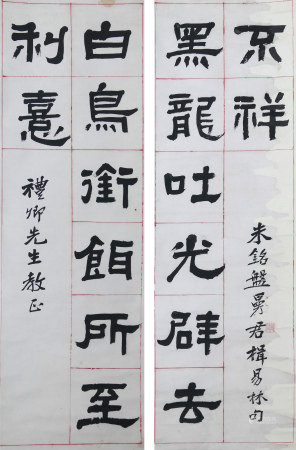 白鳥銜餌所至
利憙
禮卿先生教正
黑龍吐光辟去
不祥
朱銘盤曼君楫易林句